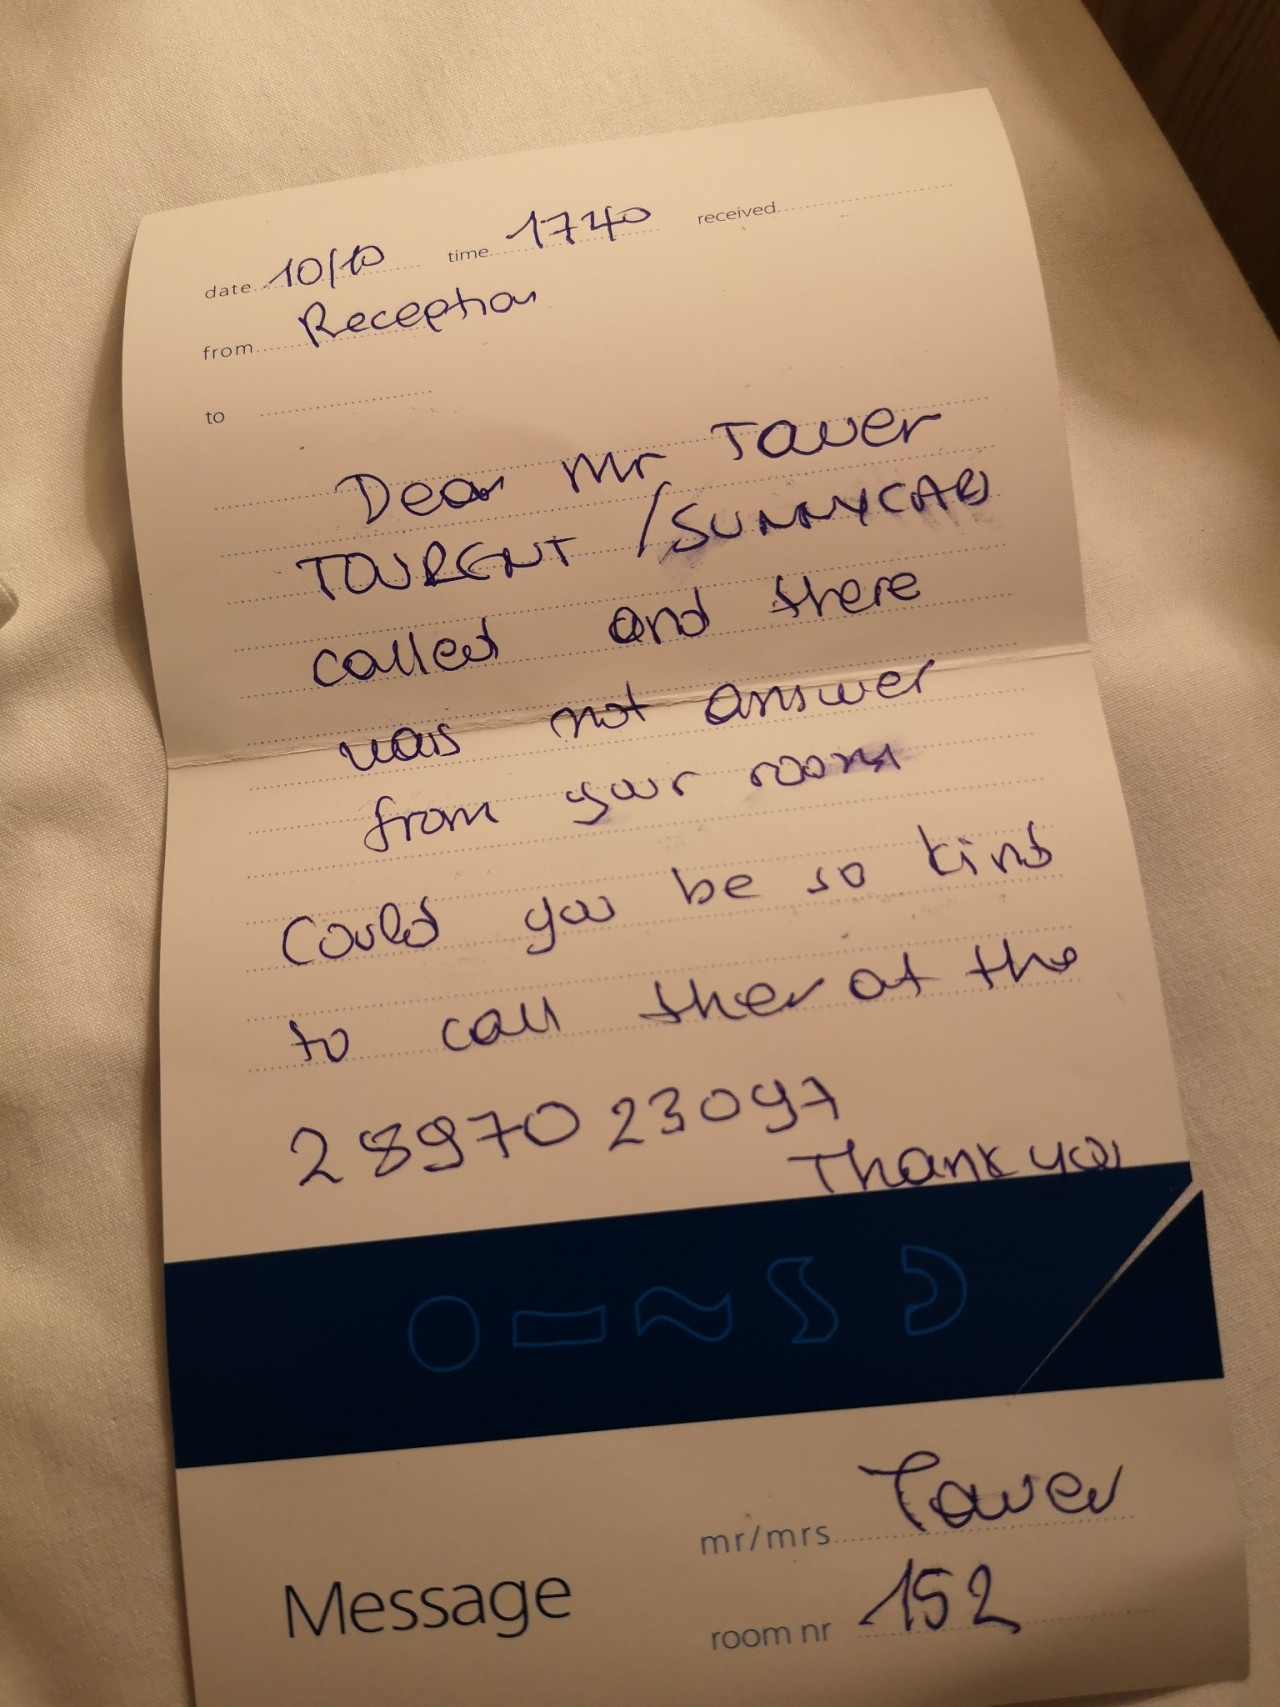 date 10/10 time 1740 received
from Reception
to
Dear Mr Tower
TOURENT / SUNNYCAR
called and there
was not answer
from your room
Could you be so kind
to call ther at the
2897023097
Thank you
Message
mr/mrs Tower
room nr 152